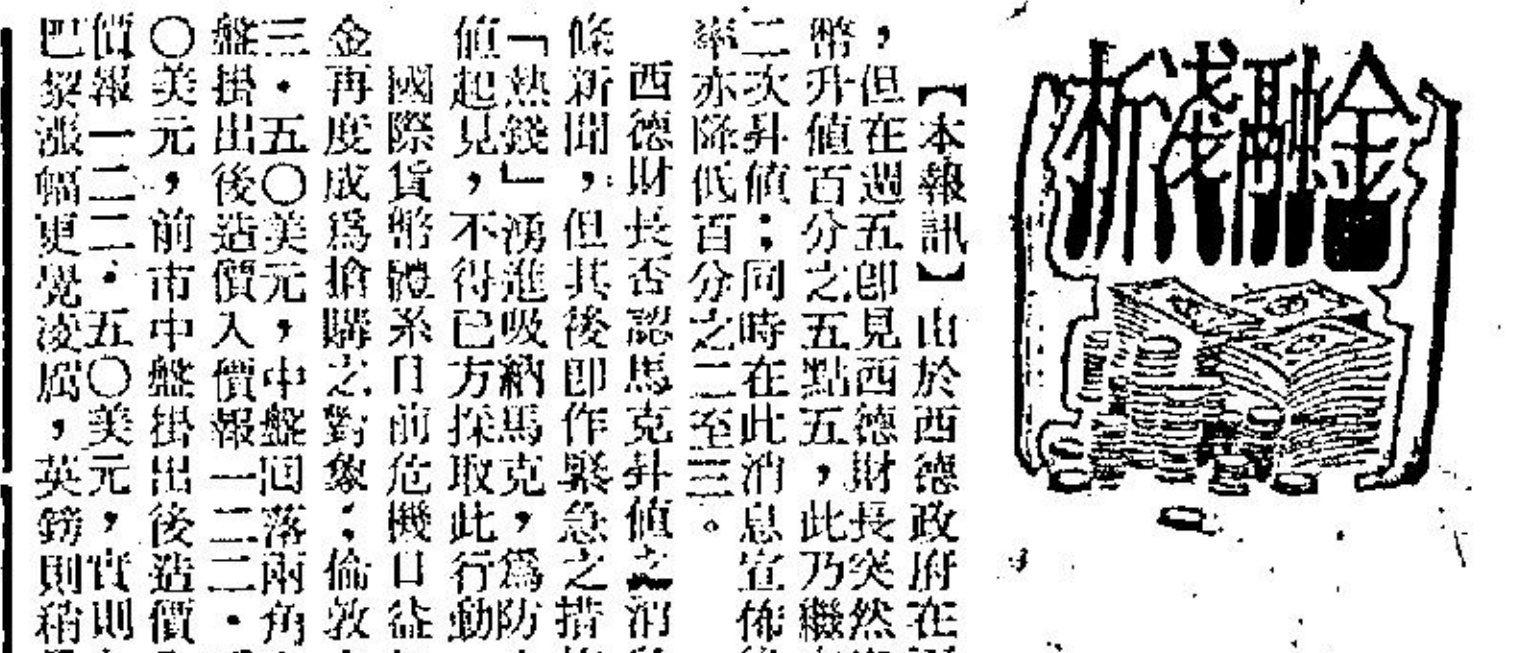 金融淺析
【本報訊】由於西德政府在
，但在週五即見西德財長突然
幣升值百分之五點五，此乃繼
二次昇值；同時在此消息宣佈
率亦降低百分之二至三。
西德財長否認馬克昇值之消
條新聞，但其後即作緊急之措
「熱錢」湧進吸納馬克，爲防
值起見，不得已方採取此行動
國際貨幣體系目前危機日益
金再度成爲搶購之對象；倫敦
三．五〇美元，中盤囘落兩角
盤掛出後造價入價報一二二．
〇美元，前市中盤掛出後造價
價報一二二．五〇美元，實則
巴黎漲幅更覺凌厲，英鎊則稍